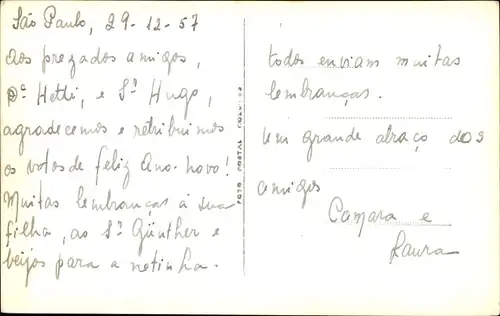 São Paulo, 29-12-57
Aos prezados amigos,
Dª Hetti, e Sr Hugo,
agradecemos e retribuimos
os votos de feliz Ano-novo!
Muitas lembranças à sua
filha, ao Sr Günther e
beijos para a netinha.
FOTO POSTAL
todos enviam muitas
lembranças.
Um grande abraço dos
amigos
Camara e
Laura